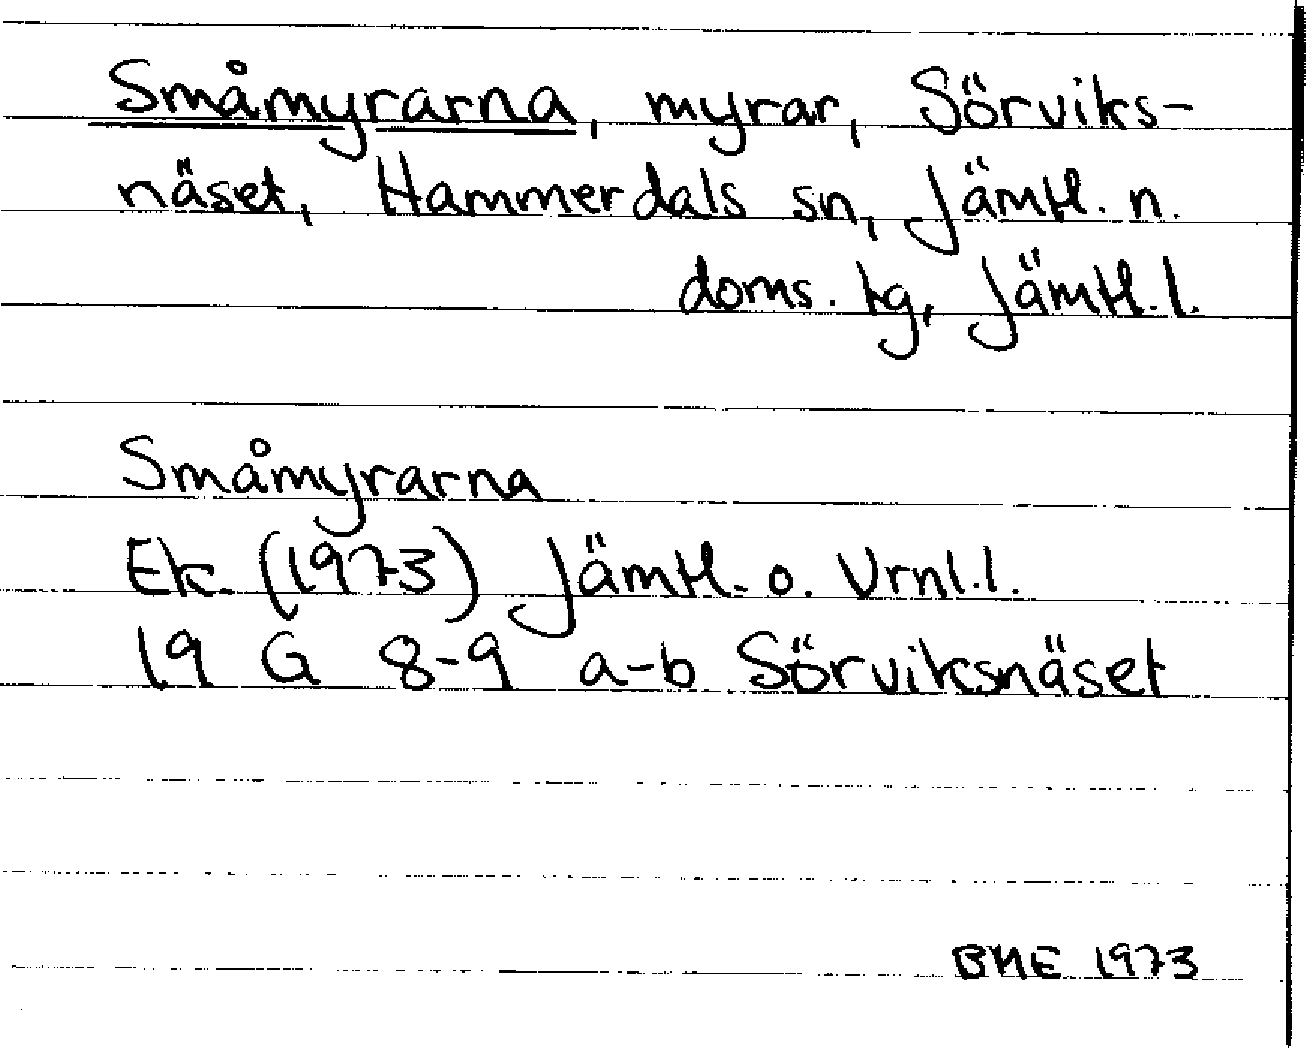 Småmyrarna, myrar, Sörviks-
näset, Hammerdals sn, Jämtl. n.
doms. tg, Jämtl. l.
Småmyrarna
Ek. (1973) Jämtl. o. Vrnl. l.
19 G 8-9 a-b Sörviksnäset
BME 1973